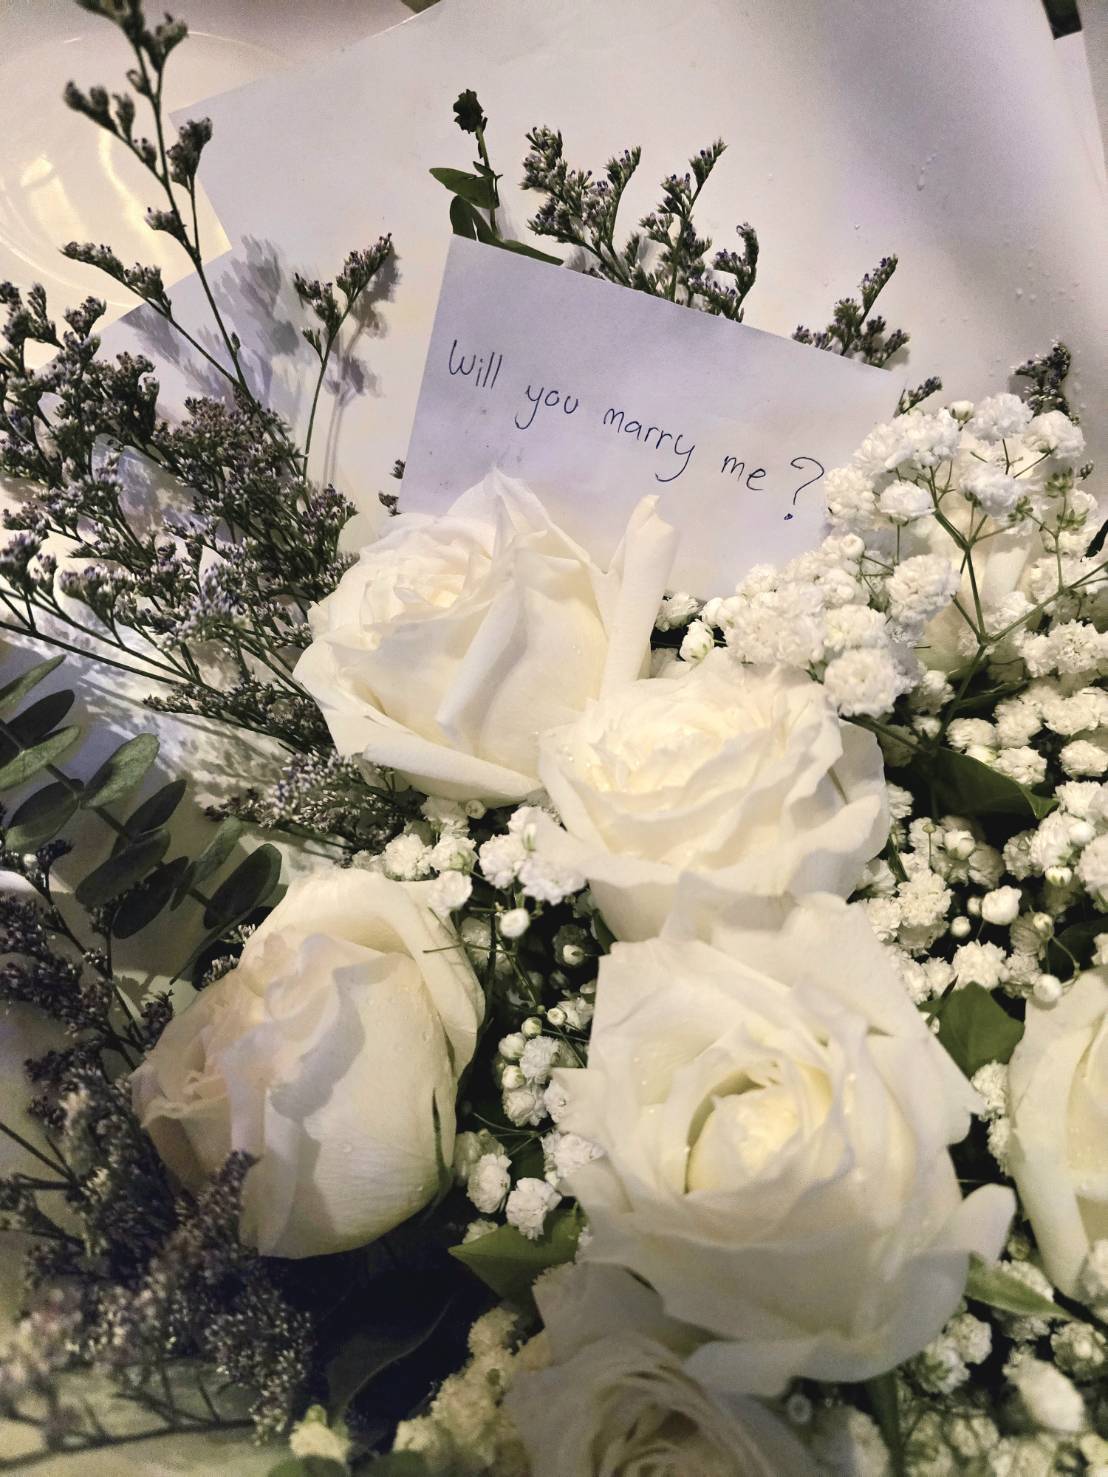 Will you marry me ?